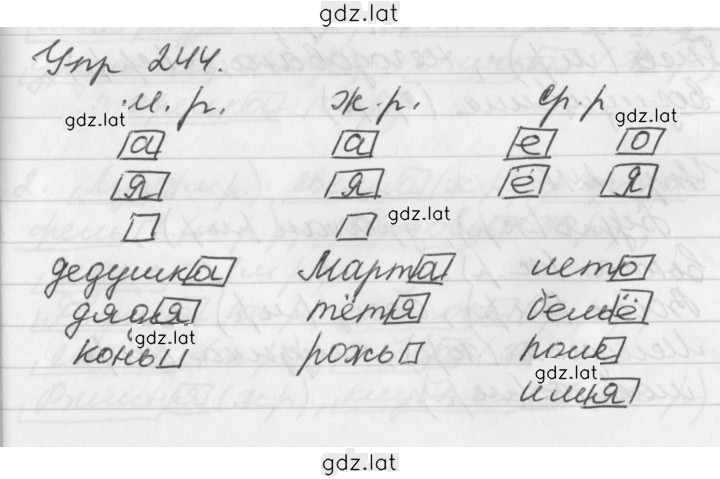 gdz.lat
Упр 244.
м.р. ж.р. ср.р
gdz.lat gdz.lat
а а е о
я я ё я
gdz.lat
дедушка Марта лето
дядя тётя бельё
gdz.lat
конь рожь поле
gdz.lat
имя
gdz.lat